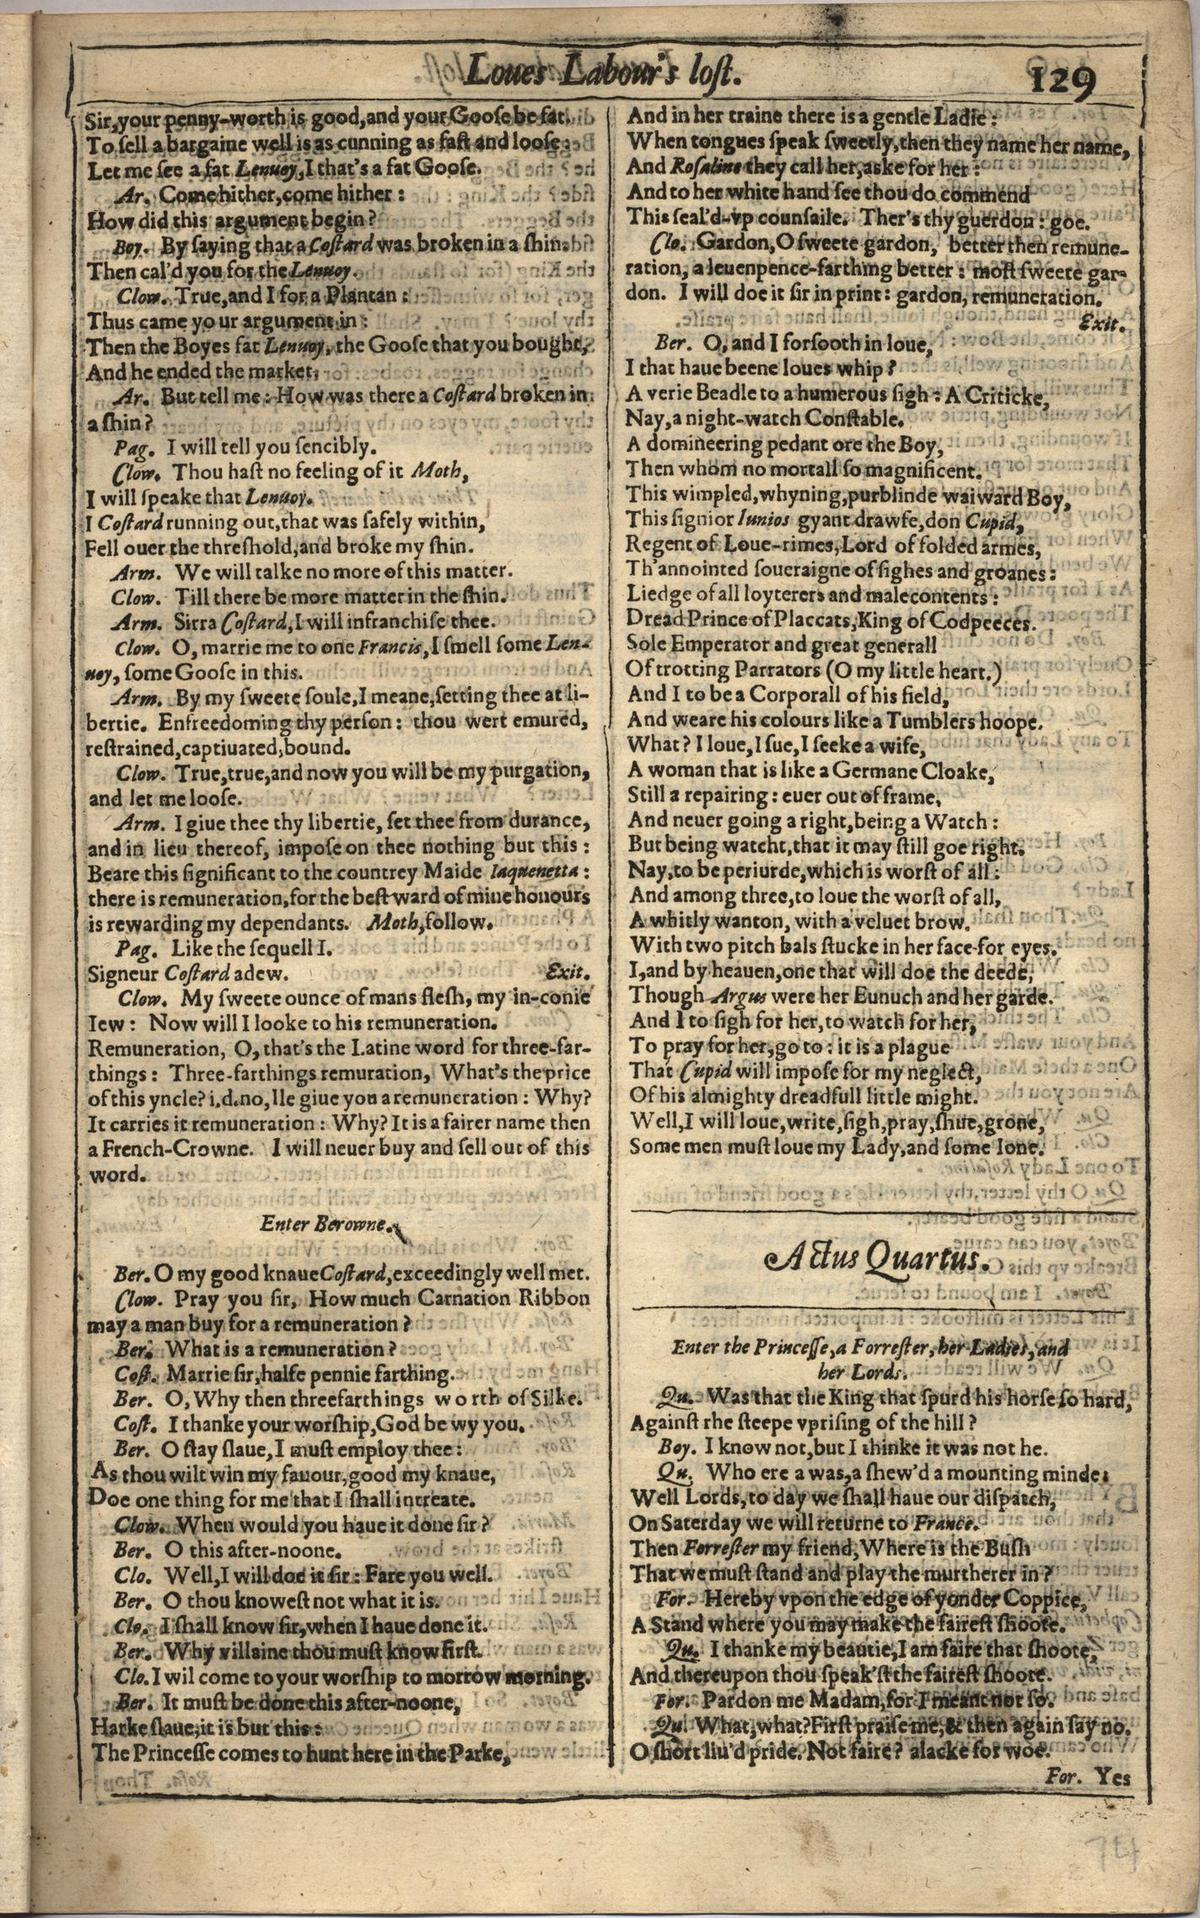 Loues Labour's lost.
129
Sir, your penny-worth is good, and your Goose be fat.
To sell a bargaine well is as cunning as fast and loose:
Let me see a fat Lenuoy, I that's a fat Goose.
Ar. Come hither, come hither:
How did this argument begin?
Boy. By saying that a Costard was broken in a shin.
Then cal'd you for the Lenuoy.
Clow. True, and I for a Plantan:
Thus came your argument in:
Then the Boyes fat Lenuoy, the Goose that you bought,
And he ended the market.
Ar. But tell me: How was there a Costard broken in
a shin?
Pag. I will tell you sencibly.
Clow. Thou hast no feeling of it Moth,
I will speake that Lenuoy.
I Costard running out, that was safely within,
Fell ouer the threshold, and broke my shin.
Arm. We will talke no more of this matter.
Clow. Till there be more matter in the shin.
Arm. Sirra Costard, I will infranchise thee.
Clow. O, marrie me to one Francis, I smell some Len-
uoy, some Goose in this.
Arm. By my sweete soule, I meane, setting thee at li-
bertie. Enfreedoming thy person: thou wert emured,
restrained, captiuated, bound.
Clow. True, true, and now you will be my purgation,
and let me loose.
Arm. I giue thee thy libertie, set thee from durance,
and in lieu thereof, impose on thee nothing but this:
Beare this significant to the countrey Maide Iaquenetta:
there is remuneration, for the best ward of mine honours
is rewarding my dependants. Moth, follow.
Pag. Like the sequell I.
Signeur Costard adew. Exit.
Clow. My sweete ounce of mans flesh, my in-conie
Iew: Now will I looke to his remuneration.
Remuneration, O, that's the Latine word for three-far-
things: Three-farthings remuration, What's the price
of this yncle? i.d. no, Ile giue you a remuneration: Why?
It carries it remuneration: Why? It is a fairer name then
a French-Crowne. I will neuer buy and sell out of this
word.
Enter Berowne.
Ber. O my good knaue Costard, exceedingly well met.
Clow. Pray you sir, How much Carnation Ribbon
may a man buy for a remuneration?
Ber. What is a remuneration?
Cost. Marrie sir, halfe pennie farthing.
Ber. O, Why then threefarthings worth of Silke.
Cost. I thanke your worship, God be wy you.
Ber. O stay slaue, I must employ thee:
As thou wilt win my fauour, good my knaue,
Doe one thing for me that I shall intreate.
Clow. When would you haue it done sir?
Ber. O this after-noone.
Clo. Well, I will doe it sir: Fare you well.
Ber. O thou knowest not what it is.
Clo. I shall know sir, when I haue done it.
Ber. Why villaine thou must know first.
Clo. I wil come to your worship to morrow morning.
Ber. It must be done this after-noone,
Harke slaue, it is but this:
The Princesse comes to hunt here in the Parke,
And in her traine there is a gentle Ladie:
When tongues speak sweetly, then they name her name,
And Rosaline they call her, aske for her:
And to her white hand see thou do commend
This seal'd-vp counsaile. Ther's thy guerdon: goe.
Clo. Gardon, O sweete gardon, better then remune-
ration, a leuenpence-farthing better: most sweete gar-
don. I will doe it sir in print: gardon, remuneration.
Exit.
Ber. O, and I forsooth in loue,
I that haue beene loues whip?
A verie Beadle to a humerous sigh: A Criticke,
Nay, a night-watch Constable.
A domineering pedant ore the Boy,
Then whom no mortall so magnificent.
This wimpled, whyning, purblinde waiward Boy,
This signior Iunios gyant drawfe, don Cupid,
Regent of Loue-rimes, Lord of folded armes,
Th'annointed soueraigne of sighes and groanes:
Liedge of all loyterers and malecontents:
Dread Prince of Placcats, King of Codpeeces.
Sole Emperator and great generall
Of trotting Parrators (O my little heart.)
And I to be a Corporall of his field,
And weare his colours like a Tumblers hoope.
What? I loue, I sue, I seeke a wife,
A woman that is like a Germane Cloake,
Still a repairing: euer out of frame,
And neuer going a right, being a Watch:
But being watcht, that it may still goe right.
Nay, to be periurde, which is worst of all:
And among three, to loue the worst of all,
A whitly wanton, with a veluet brow.
With two pitch bals stucke in her face for eyes.
I, and by heauen, one that will doe the deede,
Though Argus were her Eunuch and her garde.
And I to sigh for her, to watch for her,
To pray for her, go to: it is a plague
That Cupid will impose for my neglect,
Of his almighty dreadfull little might.
Well, I will loue, write, sigh, pray, shue, grone,
Some men must loue my Lady, and some Ione.
Actus Quartus.
Enter the Princesse, a Forrester, her Ladies, and
her Lords.
Qu. Was that the King that spurd his horse so hard,
Against rhe steepe vprising of the hill?
Boy. I know not, but I thinke it was not he.
Qu. Who ere a was, a shew'd a mounting minde:
Well Lords, to day we shall haue our dispatch,
On Saterday we will returne to France.
Then Forrester my friend, Where is the Bush
That we must stand and play the murtherer in?
For. Hereby vpon the edge of yonder Coppice,
A Stand where you may make the fairest shoote.
Qu. I thanke my beautie, I am faire that shoote,
And thereupon thou speak'st the fairest shoote.
For. Pardon me Madam, for I meant not so.
Qu. What, what? First praise me, & then again say no.
O short liu'd pride. Not faire? alacke for woe.
For. Yes